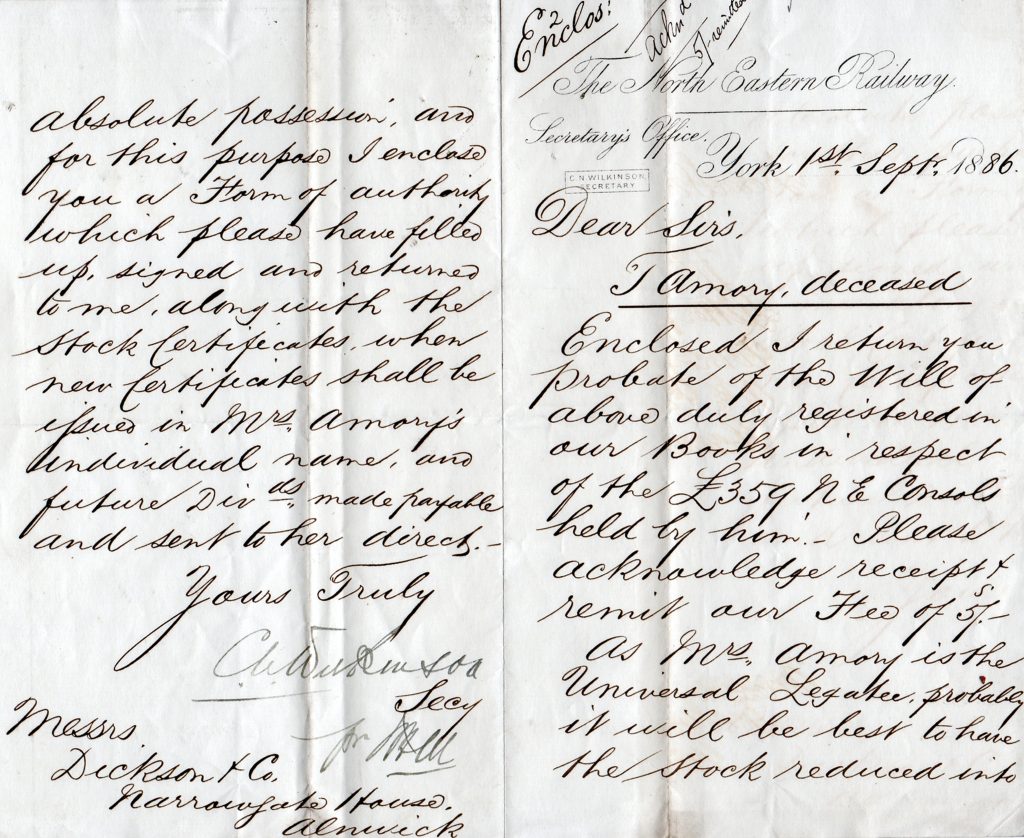 2
Enclos:
ackn.d
5/- remitted
The North Eastern Railway.
Secretary's Office.
York 1st. Septr. 1886.
C. N. WILKINSON,
SECRETARY
Dear Sirs,
T Amory, deceased
Enclosed I return you
probate of the Will of
above duly registered in
our Books in respect
of the £359 N E Consols
held by him.- Please
acknowledge receipt &
remit our Fee of 5/-
As Mrs. Amory is the
Universal Legatee, probably
it will be best to have
the Stock reduced into
absolute possession, and
for this purpose I enclose
you a Form of authority
which please have filled
up, signed and returned
to me, along with the
Stock Certificates, when
new Certificates shall be
issued in Mrs. Amory's
individual name, and
future Divds. made payable
and sent to her direct.-
Yours Truly
C. N. Wilkinson
Secy
pr
Messrs
Dickson & Co.
Narrowgate House.
Alnwick